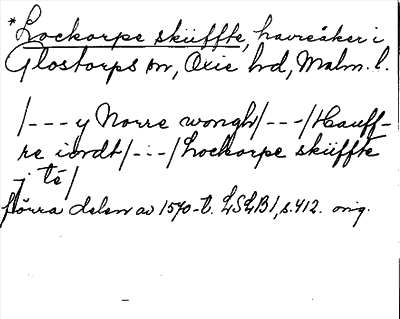 *Lockorpe sküffte, havreåker i
Glostorps sn, Oxie hd, Malm. l.
/--- y Norre wongh/---/Hauff-
re iordt/---/Lockorpe sküffte
j té/
förra delen av 1570-t. LSLB1, s. 412. orig.